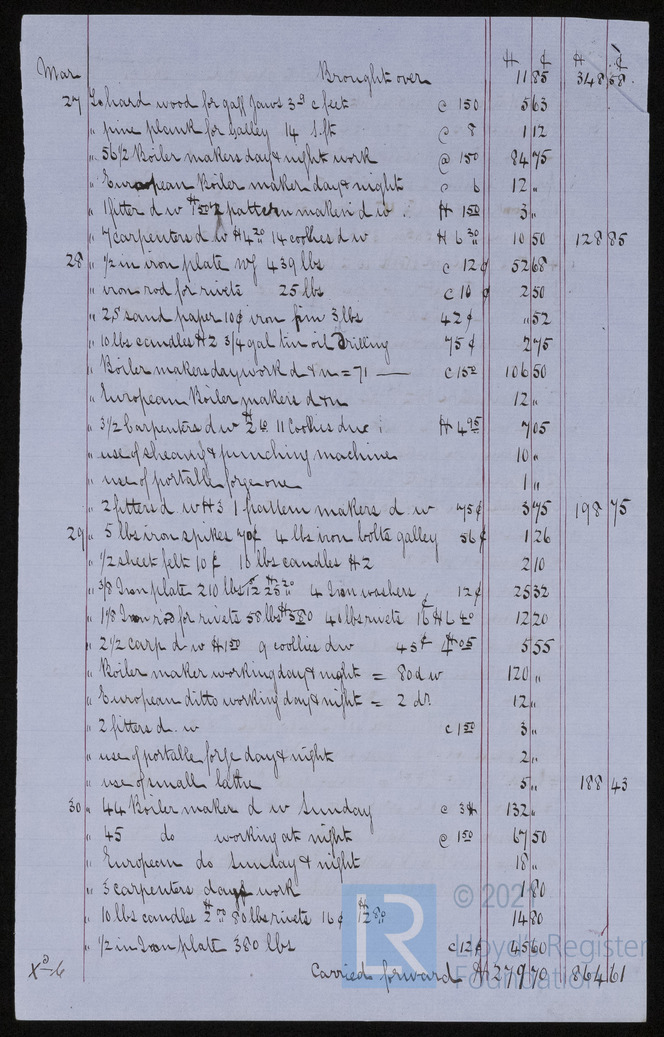 $ ¢ $ ¢
Mar Brought over 11 85 348 58
27 Lohard wood for gaff Jaws 3 9 c feet @ 150 5 63
" pine plank for Galley 14 s.ft @ 8 1 12
" 56 1/2 Boiler makers day & night work @ 150 84 75
" European Boiler maker day & night @ 6 12 "
" 1 fitter d w $1.50 2 pattern maker d w $ 1 50 3 "
" 7 carpenters d w $4 20 14 coolies d w $ 6 30 10 50 128 85
28 " 1/2 in iron plate wg 439 lbs @ 12 ¢ 52 68
" iron rod for rivets 25 lbs @ 10 ¢ 2 50
" 25 sand paper 10¢ iron 3 lbs 42 ¢ " 52
" 10 lbs candles $2 3/4 gal tin oil Drilling 75 ¢ 2 75
" Boiler makers day work d & n = 71 — @ 1 50 106 50
" European Boiler makers d & n 12 "
" 3 1/2 Carpenters d w $2 10 11 Coolies d w $ 4 95 7 05
" use of shearing & punching machine 10 "
" use of portable forge one 1 "
" 2 fitters d. w $3 1 pattern makers d w 75 ¢ 3 75 198 75
29 " 5 lbs iron spikes 70¢ 4 lbs iron bolts galley 56 ¢ 1 26
" 1/2 sheet felt 10 ¢ 10 lbs candles $2 2 10
" 3/8 Iron plate 210 lbs 12 $25 20 4 Iron washers 12 ¢ 25 32
" 1 1/8 Iron rod for rivets 58 lbs $5 80 40 lbs rivets 16 ¢ $6 40 12 20
" 2 1/2 carp d w $1 50 9 coollies d w 45 ¢ $4 05 5 55
" Boiler maker working day & night = 80 d w 120 "
" European ditto working day & night = 2 do 12 "
" 2 fitters d. w @ 1 50 3 "
" use of portable forge day & night 2 "
" use of small lathe 5 " 188 43
30 " 44 Boiler maker d w Sunday @ 3 $ 132 "
" 45 do working at night @ 1 50 67 50
" European do Sunday & night 18 "
" 3 carpenters days work 1 80
" 10 lbs candles $2 00 80 lbs rivets 16 ¢ $12 80 14 80
" 1/2 in Iron plate 380 lbs @ 12 ¢ 45 60
Carried forward $ 279 70 864 61
© 2021
LR
Lloyd's Register
Foundation